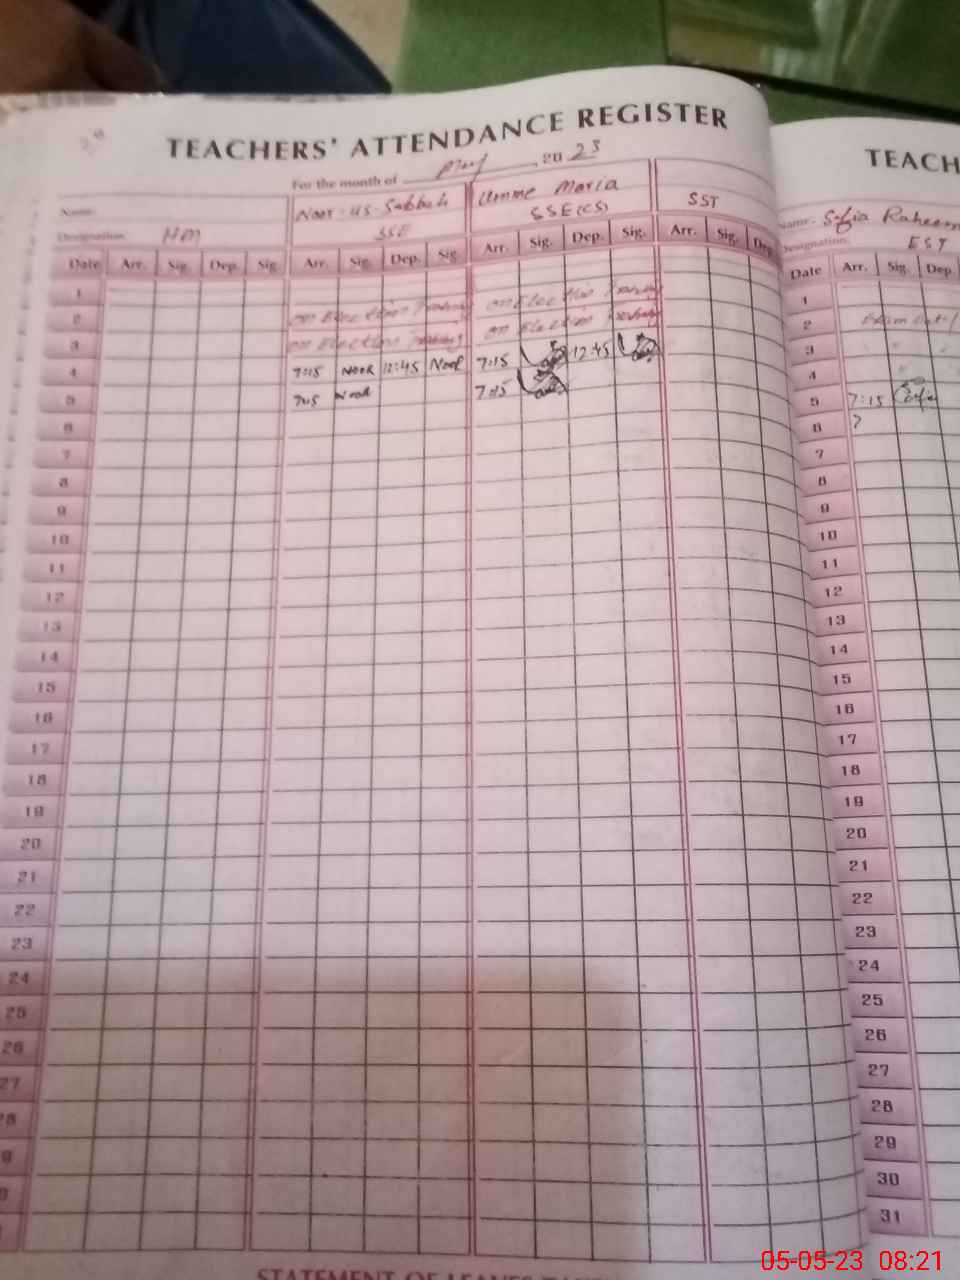 TEACHERS' ATTENDANCE REGISTER
For the month of May, 20 23
Name: Noor-us-Sabbah Umme Maria
Designation. HM SSE SSE(CS) SST
Date Arr. Sig. Dep. Sig. Arr. Sig. Dep. Sig. Arr. Sig. Dep. Sig. Arr. Sig. Dep.
1
2 on Election Training on Election Training
3 on Election Training on Election Training
4 7:15 Noor 12:45 Noor 7:15 12:45
5 7:15 Noor 7:15
6
7
8
9
10
11
12
13
14
15
16
17
18
19
20
21
22
23
24
25
26
27
28
9
0
STATEMENT OF LEAVES
TEACH
Name:- Safia Raheem
Designation. EST
Date Arr. Sig. Dep.
1
2
3
4
5 7:15 Safia
6 7
7
8
9
10
11
12
13
14
15
16
17
18
19
20
21
22
23
24
25
26
27
28
29
30
31
05-05-23 08:21